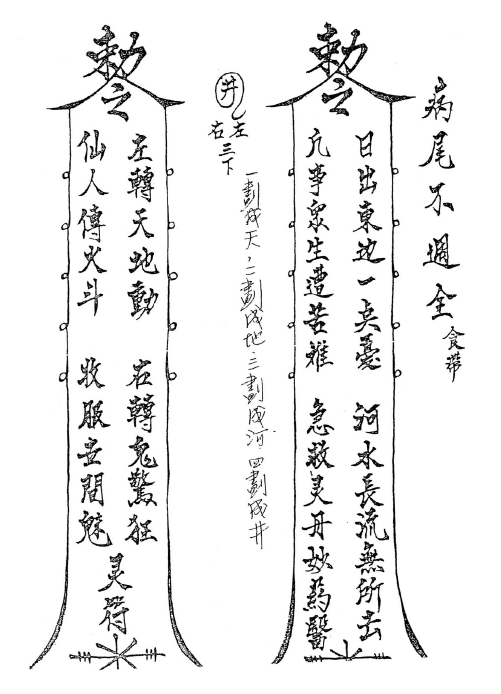 病尾不週全
食帶
敕令
日出東边一点憂
河水長流無所去
凡事眾生遭苦难
急救灵丹妙葯醫
井
左
右
三下
一劃成天,二劃成地,三劃成河,四劃成井
敕令
左轉天地動
右轉鬼驚狂
仙人傳火斗
收服世間魅
灵符